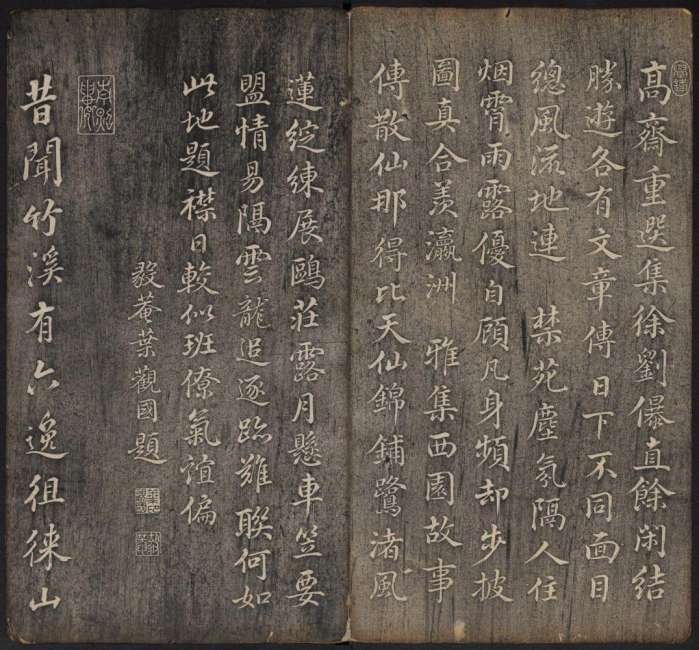 高齋重選集徐劉儤直餘閑結
勝遊各有文章傳日下不同面目
總風流地連　禁苑塵氛隔人住
烟霄雨露優自顧凡身頻却步披
圖真合羨瀛洲　雅集西園故事
傳散仙那得比天仙錦鋪鷺渚風
蓮綻練展鷗莊露月懸車笠要
盟情易隔雲龍追逐跡難聯何如
此地題襟日較似班僚氣誼偏
毅菴葉觀國題
昔聞竹溪有六逸徂徠山